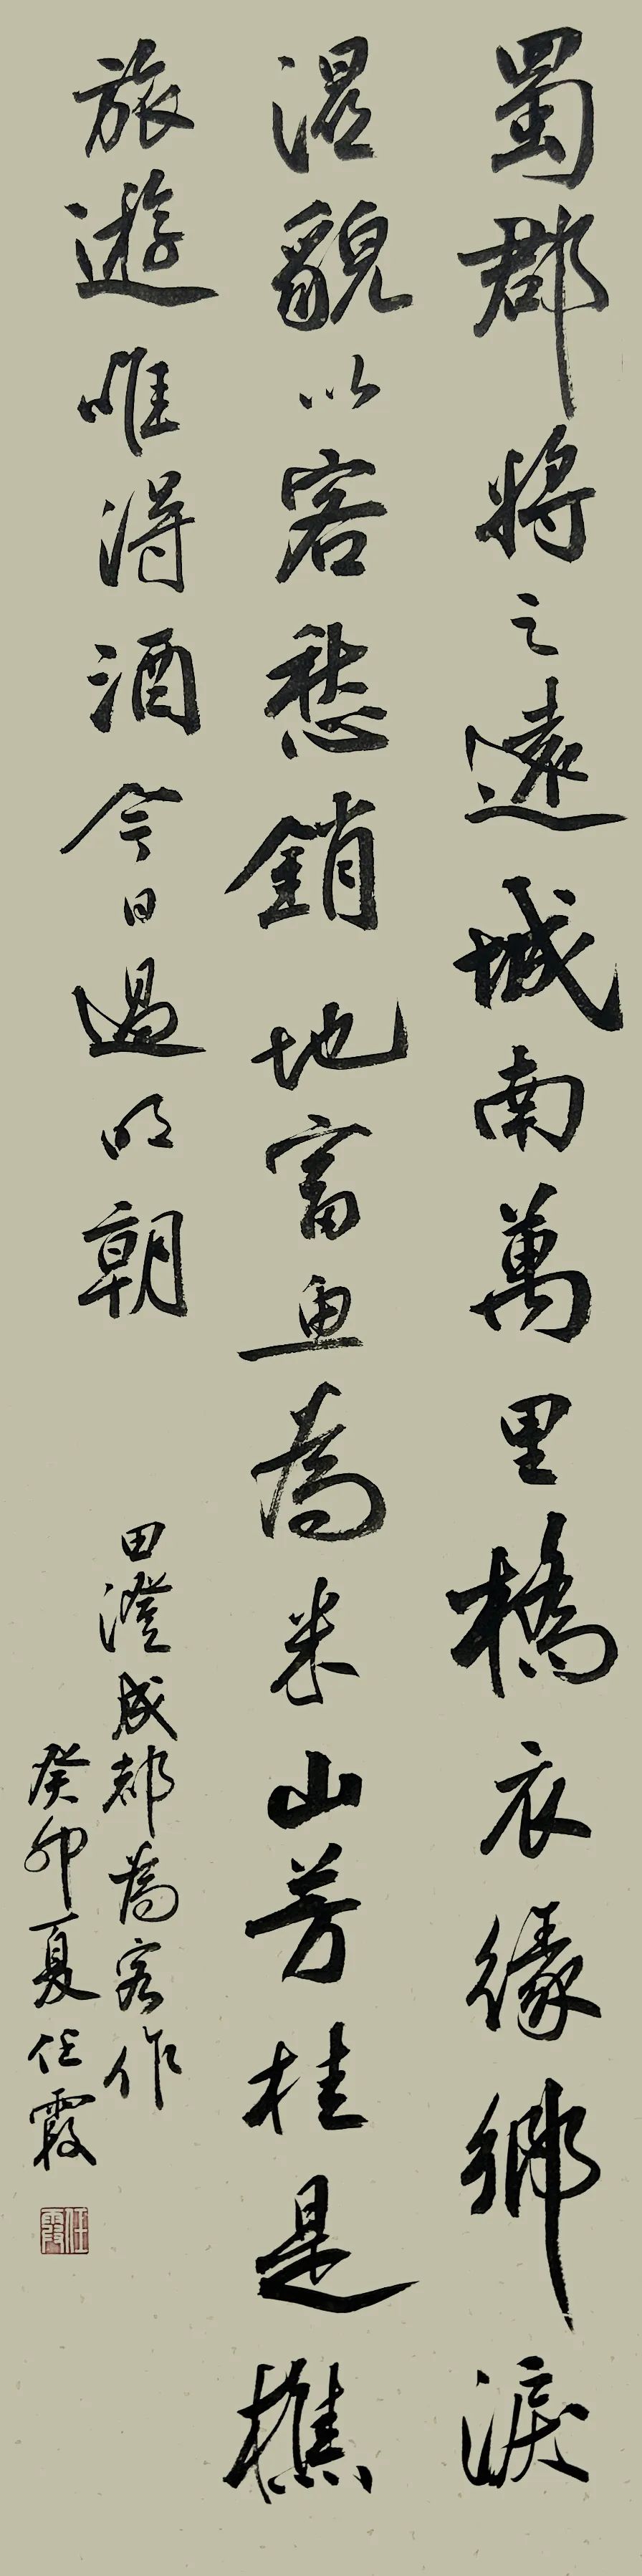 蜀郡将之遠城南萬里橋衣緣鄉淚
濕貌以客愁銷地富魚為米山芳桂是樵
旅遊唯得酒今日過明朝
田澄成都為客作
癸卯夏任霞
任霞